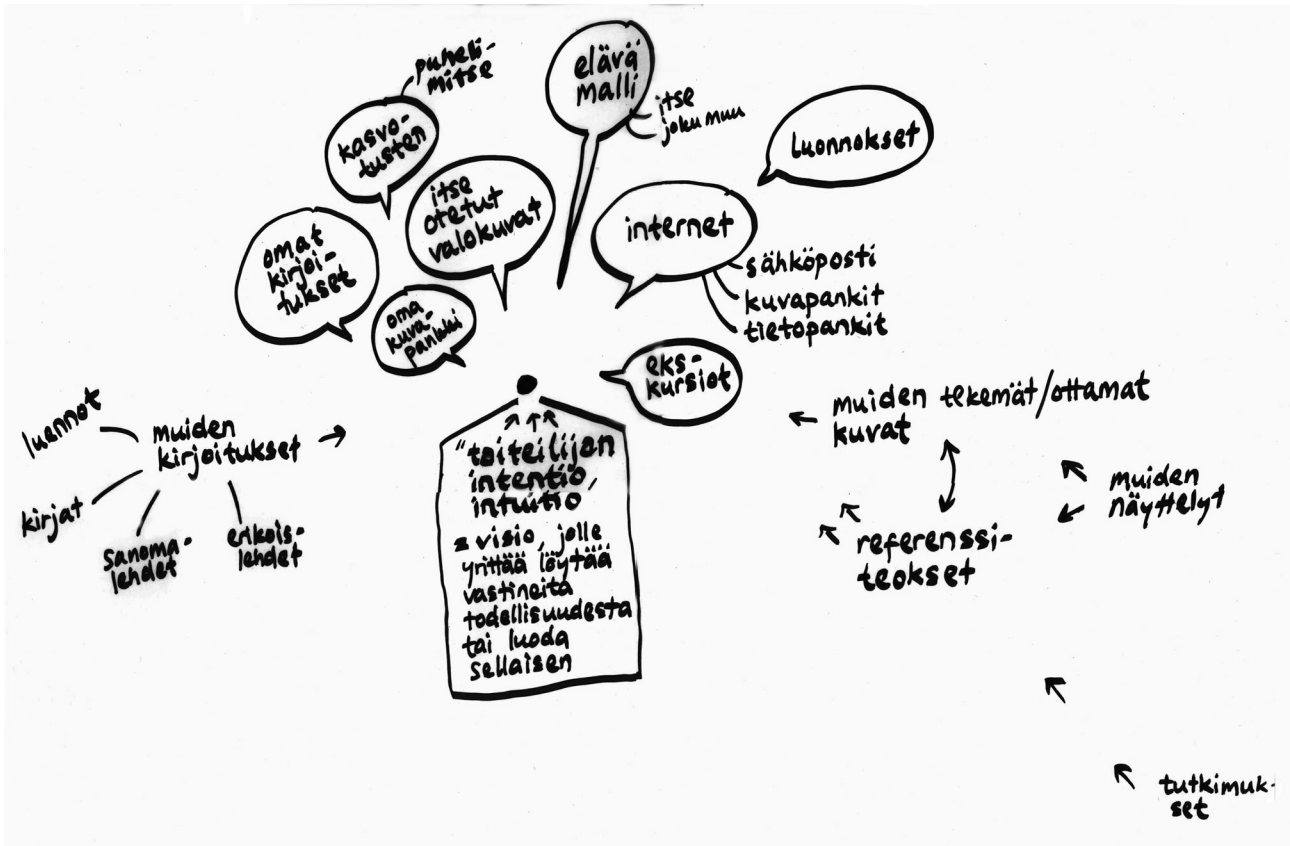 puheli-
mitse
kasvo-
tusten
elävä
malli
itse
joku muu
luonnokset
itse
otetut
valokuvat
internet
sähköposti
kuvapankit
tietopankit
omat
kirjoi-
tukset
oma
kuva-
pankki
eks-
kursiot
luennot
muiden
kirjoitukset
kirjat
sanoma-
lehdet
erikois-
lehdet
"taiteilijan
intentio,
intuitio,
= visio, jolle
yrittää löytää
vastineita
todellisuudesta
tai luoda
sellaisen
muiden tekemät/ottamat
kuvat
muiden
näyttelyt
referenssi-
teokset
tutkimuk-
set